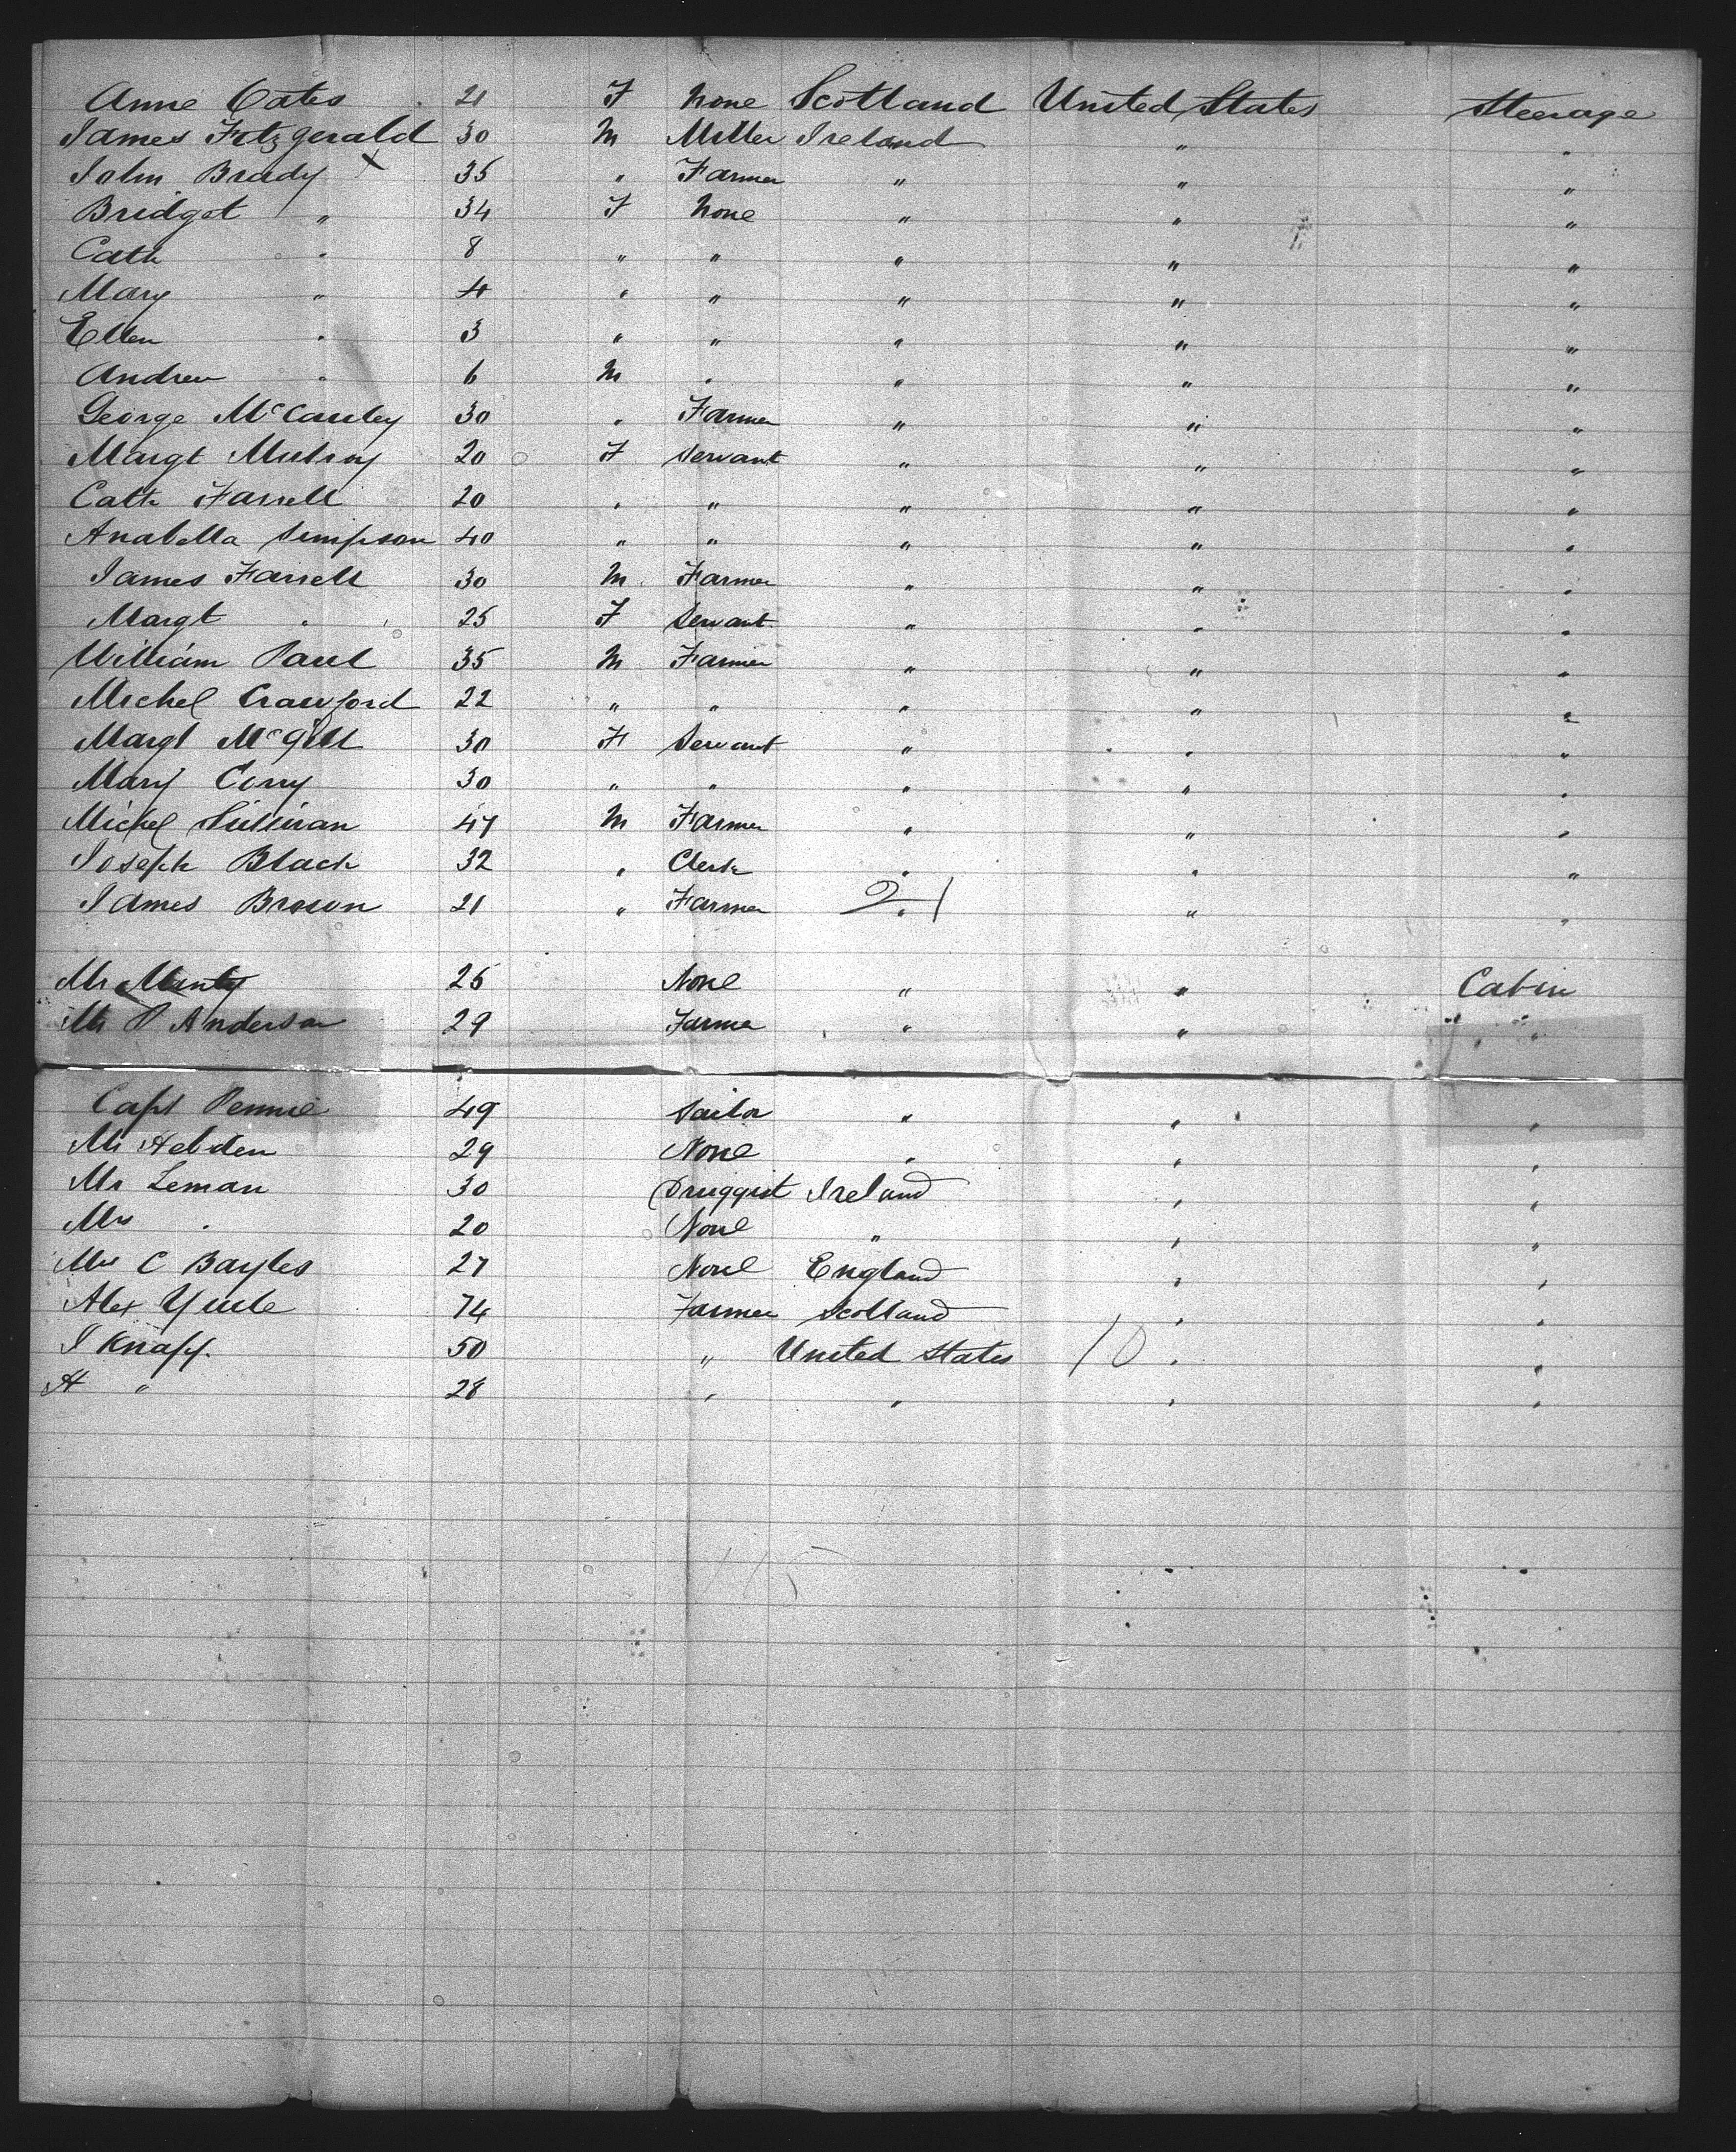 Anne Oates 21 F None Scotland United States Steerage
James Fitzgerald 30 M Miller Ireland " "
John Brady X 35 " Farmer " " "
Bridget " 34 F None " " "
Cath " 8 " " " " "
Mary " 4 " " " " "
Ellen " 3 " " " " "
Andrew " 6 M " " " "
George McCauley 30 " Farmer " " "
Margt Mulroy 20 F Servant " " "
Cath Farrell 20 " " " " "
Anabella Simpson 40 " " " " "
James Farrell 30 M Farmer " " "
Margt " 25 F Servant " " "
William Paul 35 M Farmer " " "
Michel Crawford 22 " " " " "
Margt McGill 30 F Servant " " "
Mary Corry 30 " " " " "
Michel Sullivan 47 M Farmer " " "
Joseph Black 32 " Clerk " " "
James Brown 21 " Farmer " 21 " "
Mr Munty 25 None " " Cabin
Mr P Anderson 29 Farmer " " "
Capt Rennie 49 Sailor " " "
Mr Hebden 29 None " " "
Mr Leman 30 Druggist Ireland " "
Mrs " 20 None " " "
Mrs C Bayles 27 None England " "
Alex Yuile 74 Farmer Scotland " "
J Knapp. 50 " United States 10 " "
A " 28 " " " "